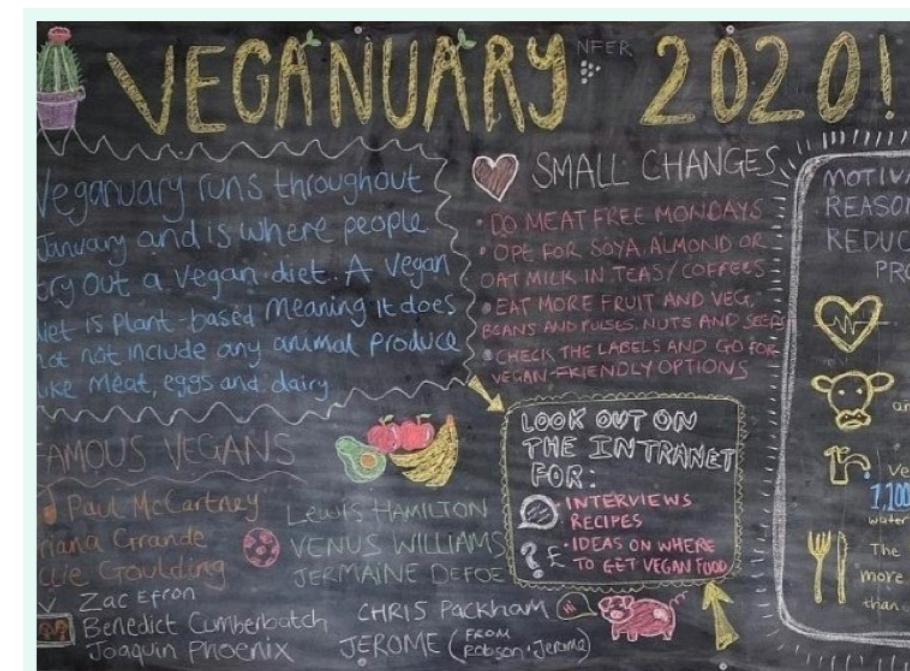 VEGANUARY 2020!
NFER
Veganuary runs throughout
January and is where people
try out a vegan diet. A vegan
diet is plant-based meaning it does
not include any animal produce
like meat, eggs and dairy
SMALL CHANGES
• DO MEAT FREE MONDAYS
• OPT FOR SOYA, ALMOND OR
OAT MILK IN TEAS/COFFEES
• EAT MORE FRUIT AND VEG,
BEANS AND PULSES, NUTS AND SEEDS
• CHECK THE LABELS AND GO FOR
VEGAN-FRIENDLY OPTIONS
LOOK OUT ON
THE INTRANET
FOR:
• INTERVIEWS
RECIPES
• IDEAS ON WHERE
TO GET VEGAN FOOD
? £
FAMOUS VEGANS
Paul McCartney
riana Grande
llie Goulding
Zac Efron
Benedict Cumberbatch
Joaquin Phoenix
LEWIS HAMILTON
VENUS WILLIAMS
JERMAINE DEFOE
CHRIS Packham
JEROME (FROM Robson & Jerome)
Hi
MOTIVA
REASON
REDUC
PRO
an
ve
1,100
water
The
more
than